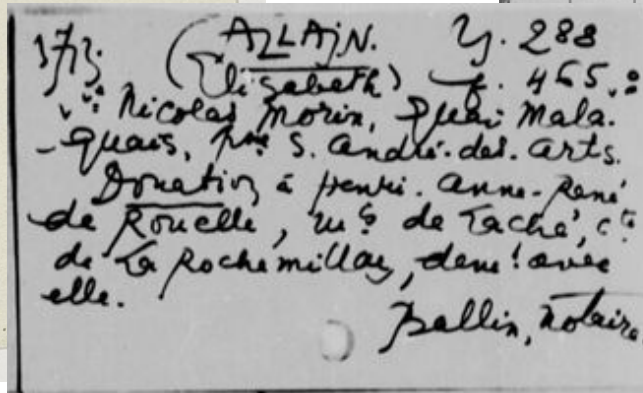 1713. (ALLAJN. Y. 288
Elisabeth) f. 465. vº
vve Nicolas Morin, Quai Mala-
-quais, psse S. André-des-Arts.
Donation à henri-Anne-René
de Rouelle, m.is de Taché, cte
de La Rochemillay, demt avec
elle.
Ballin, Notaire